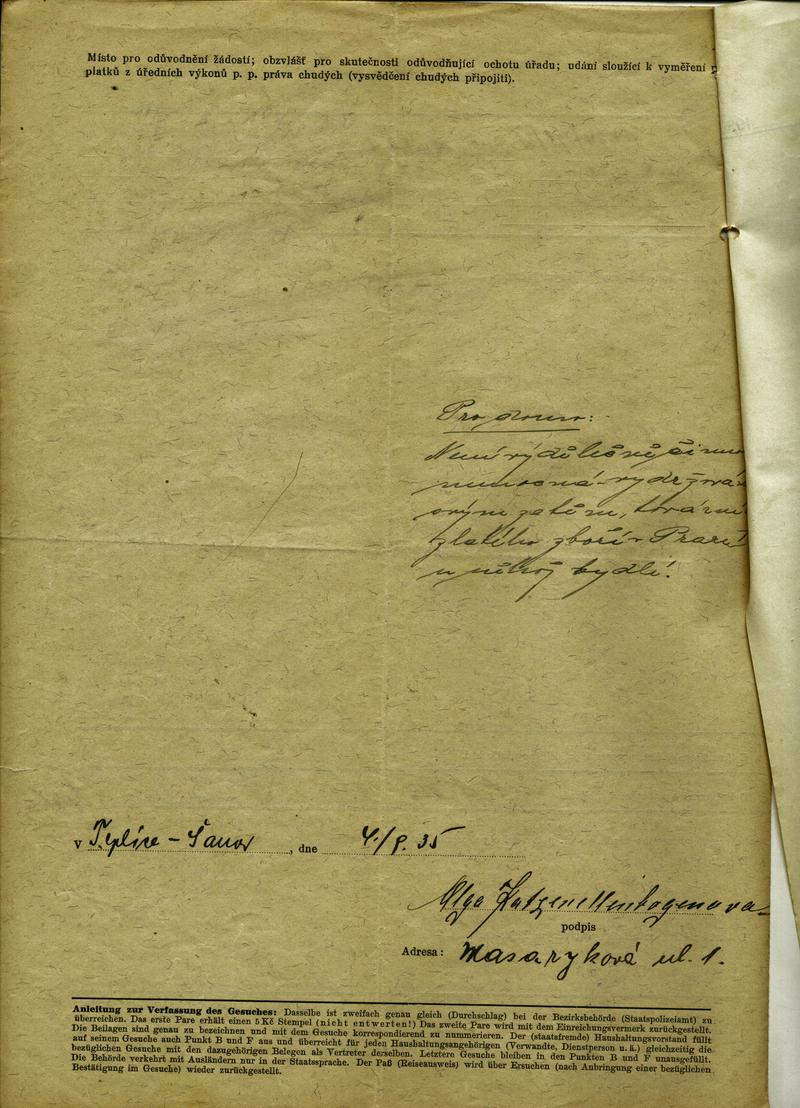 Místo pro odůvodnění žádostí; obzvlášť pro skutečnosti odůvodňující ochotu úřadu; udání sloužící k vyměření
platků z úředních výkonů p. p. práva chudých (vysvědčení chudých připojiti).
Pro domo:
Není výdělečně
zetěm,
zlatého zboží v
u něhož bydlí.
v Teplice - Šanov, dne 4./9. 35
Olga Katzenellenbogenova
podpis
Adresa: Masaryková ul. 1.
Anleitung zur Verfassung des Gesuches: Dasselbe ist zweifach genau gleich (Durchschlag) bei der Bezirksbehörde (Staatspolizeiamt) zu
überreichen. Das erste Pare erhält einen 5 Kč Stempel (nicht entwerten!) Das zweite Pare wird mit dem Einreichungsvermerk zurückgestellt.
Die Beilagen sind genau zu bezeichnen und mit dem Gesuche korrespondierend zu nummerieren. Der (staatsfremde) Haushaltungsvorstand füllt
auf seinem Gesuche auch Punkt B und F aus und überreicht für jeden Haushaltungsangehörigen (Verwandte, Dienstperson u. ä.) gleichzeitig die
bezüglichen Gesuche mit den dazugehörigen Belegen als Vertreter derselben. Letztere Gesuche bleiben in den Punkten B und F unausgefüllt.
Die Behörde verkehrt mit Ausländern nur in der Staatssprache. Der Paß (Reiseausweis) wird über Ersuchen (nach Anbringung einer bezüglichen
Bestätigung im Gesuche) wieder zurückgestellt.